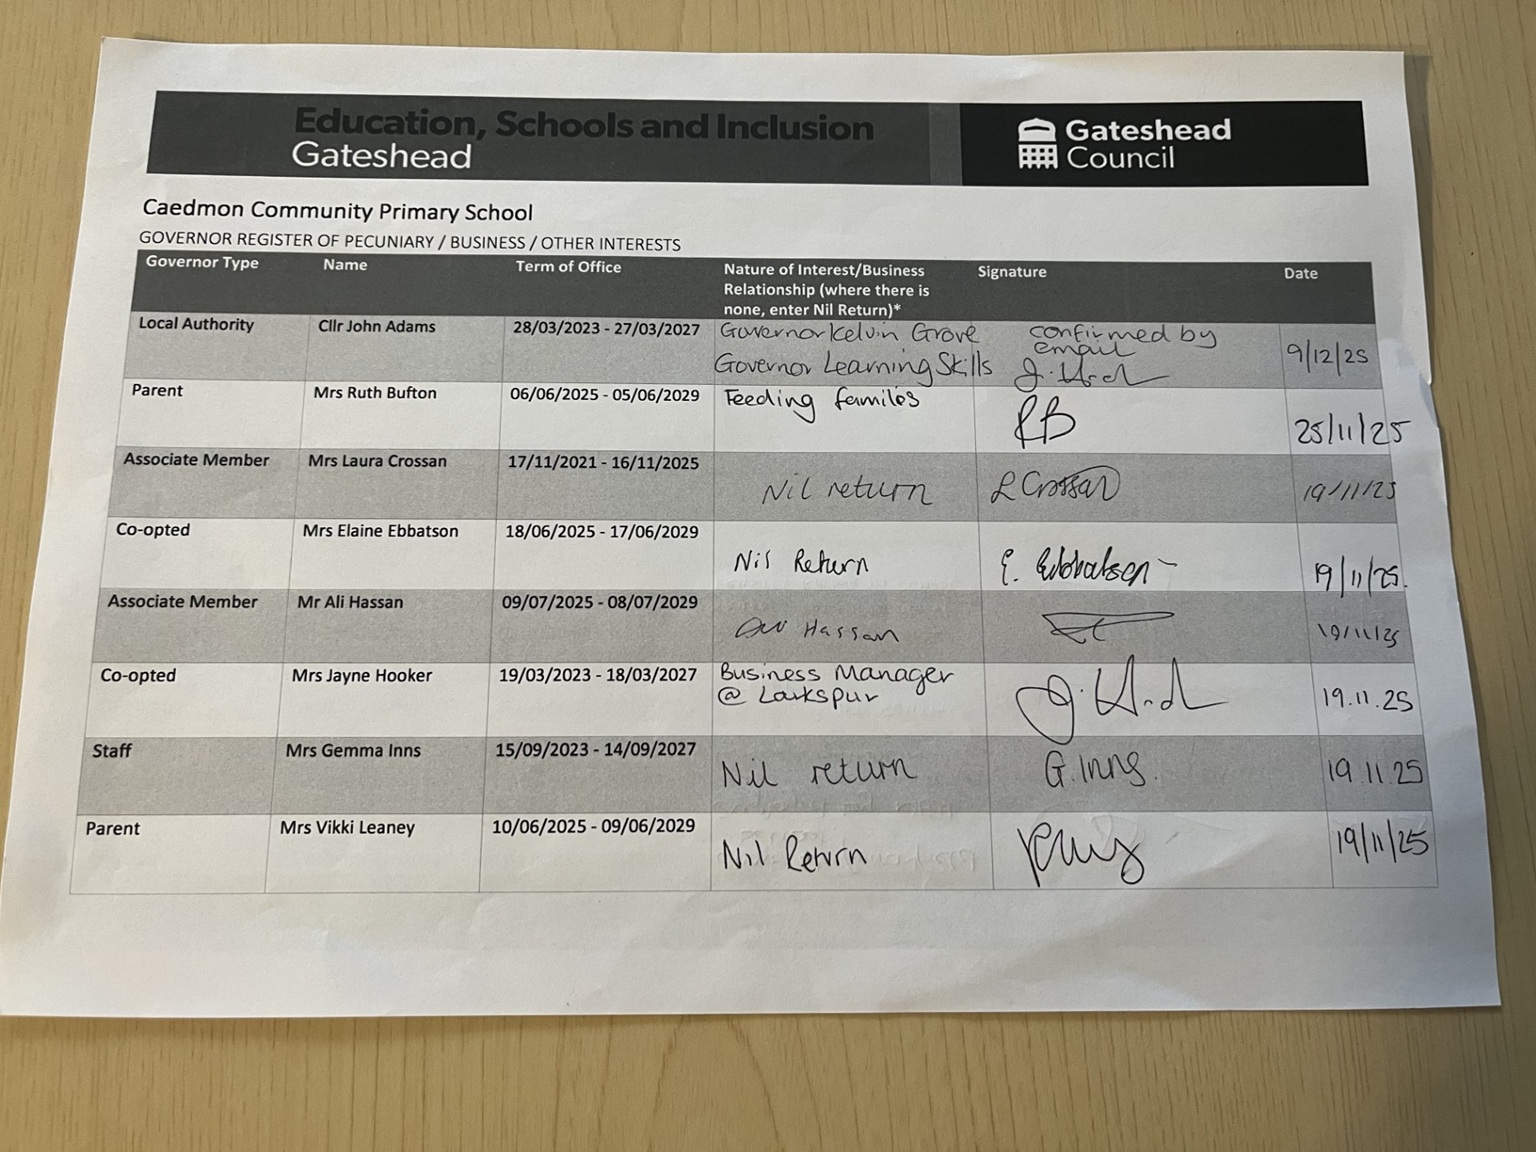 Education, Schools and Inclusion
Gateshead
Gateshead
Council
Caedmon Community Primary School
GOVERNOR REGISTER OF PECUNIARY / BUSINESS / OTHER INTERESTS
Governor Type Name Term of Office Nature of Interest/Business Relationship (where there is none, enter Nil Return)* Signature Date
Local Authority Cllr John Adams 28/03/2023 - 27/03/2027 Governor Kelvin Grove confirmed by
email
Governor Learning Skills J. H 9/12/25
Parent Mrs Ruth Bufton 06/06/2025 - 05/06/2029 Feeding familes RB 25/11/25
Associate Member Mrs Laura Crossan 17/11/2021 - 16/11/2025 Nil return L Crossan 19/11/25
Co-opted Mrs Elaine Ebbatson 18/06/2025 - 17/06/2029 Nil Return E. Ebbatson 19/11/25.
Associate Member Mr Ali Hassan 09/07/2025 - 08/07/2029 Hassan 19/11/25
Co-opted Mrs Jayne Hooker 19/03/2023 - 18/03/2027 Business Manager
@ Larkspur 19.11.25
Staff Mrs Gemma Inns 15/09/2023 - 14/09/2027 Nil return G. Inns. 19.11.25
Parent Mrs Vikki Leaney 10/06/2025 - 09/06/2029 Nil Return 19/11/25